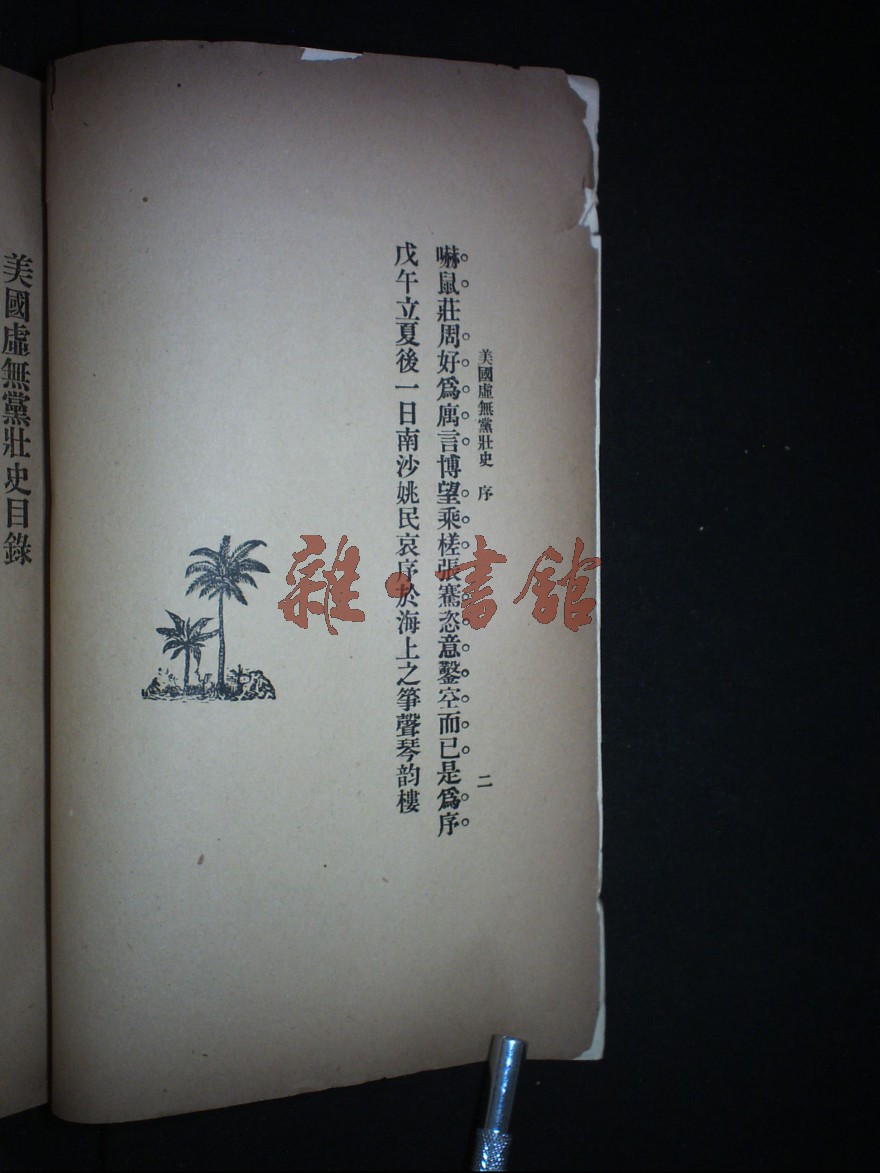 美國虛無黨壯史　序　二
嚇鼠莊周好爲寓言博望乘槎張騫恣意鑿空而已是爲序
戊午立夏後一日南沙姚民哀序於海上之箏聲琴韵樓
美國虛無黨壯史目錄
雜·書館